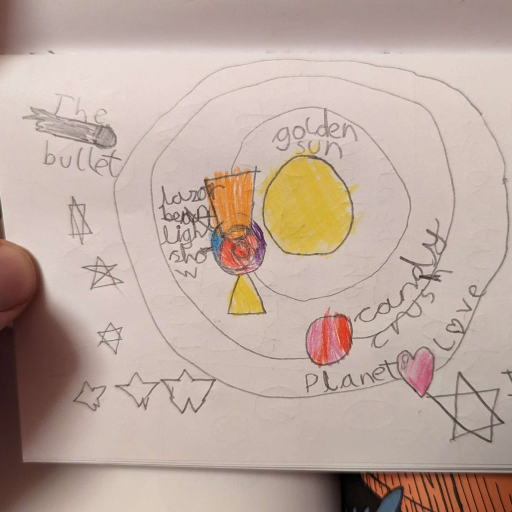 The
bullet
golden
sun
Lazor
beam
light
sho
w
candy
crush
Planet
LOVE